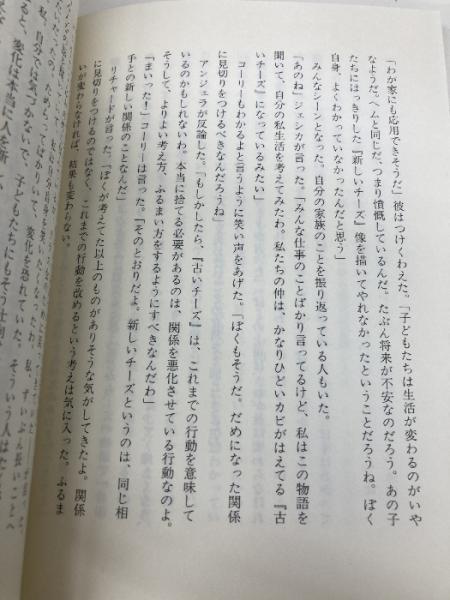 「わが家にも応用できそうだ」彼はつけくわえた。「子どもたちは生活が変わるのがいや
なようだ。ヘムと同じだ、つまり憤慨しているんだ。たぶん将来が不安なのだろう。あの子
たちにはっきりした『新しいチーズ』像を描いてやれなかったということだろうね。ぼく
自身、よくわかっていなかったんだと思う」
みんなシーンとなった。自分の家族のことを振り返っている人もいた。
「あのね」ジェシカが言った。「みんな仕事のことばかり言ってるけど、私はこの物語を
聞いて、自分の私生活を考えてみたわ。私たちの仲は、かなりひどいカビがはえてる『古
いチーズ』になっているみたい」
コーリーもわかるよと言うように笑い声をあげた。「ぼくもそうだ。だめになった関係
に見切りをつけるべきなんだろうね」
アンジェラが反論した。「もしかしたら、『古いチーズ』は、これまでの行動を意味して
いるのかもしれないわ。本当に捨てる必要があるのは、関係を悪化させている行動なのよ。
そうして、よりよい考え方、ふるまい方をするようにすべきなんだわ」
「まいった！」コーリーは言った。「そのとおりだよ。新しいチーズというのは、同じ相
手との新しい関係のことなんだ」
リチャードが言った。「ぼくが考えてた以上のものがありそうな気がしてきたよ。関係
に見切りをつけるのではなく、これまでの行動を改めるという考えは気に入った。ふるま
いが変わらなければ、結果も変わらない。